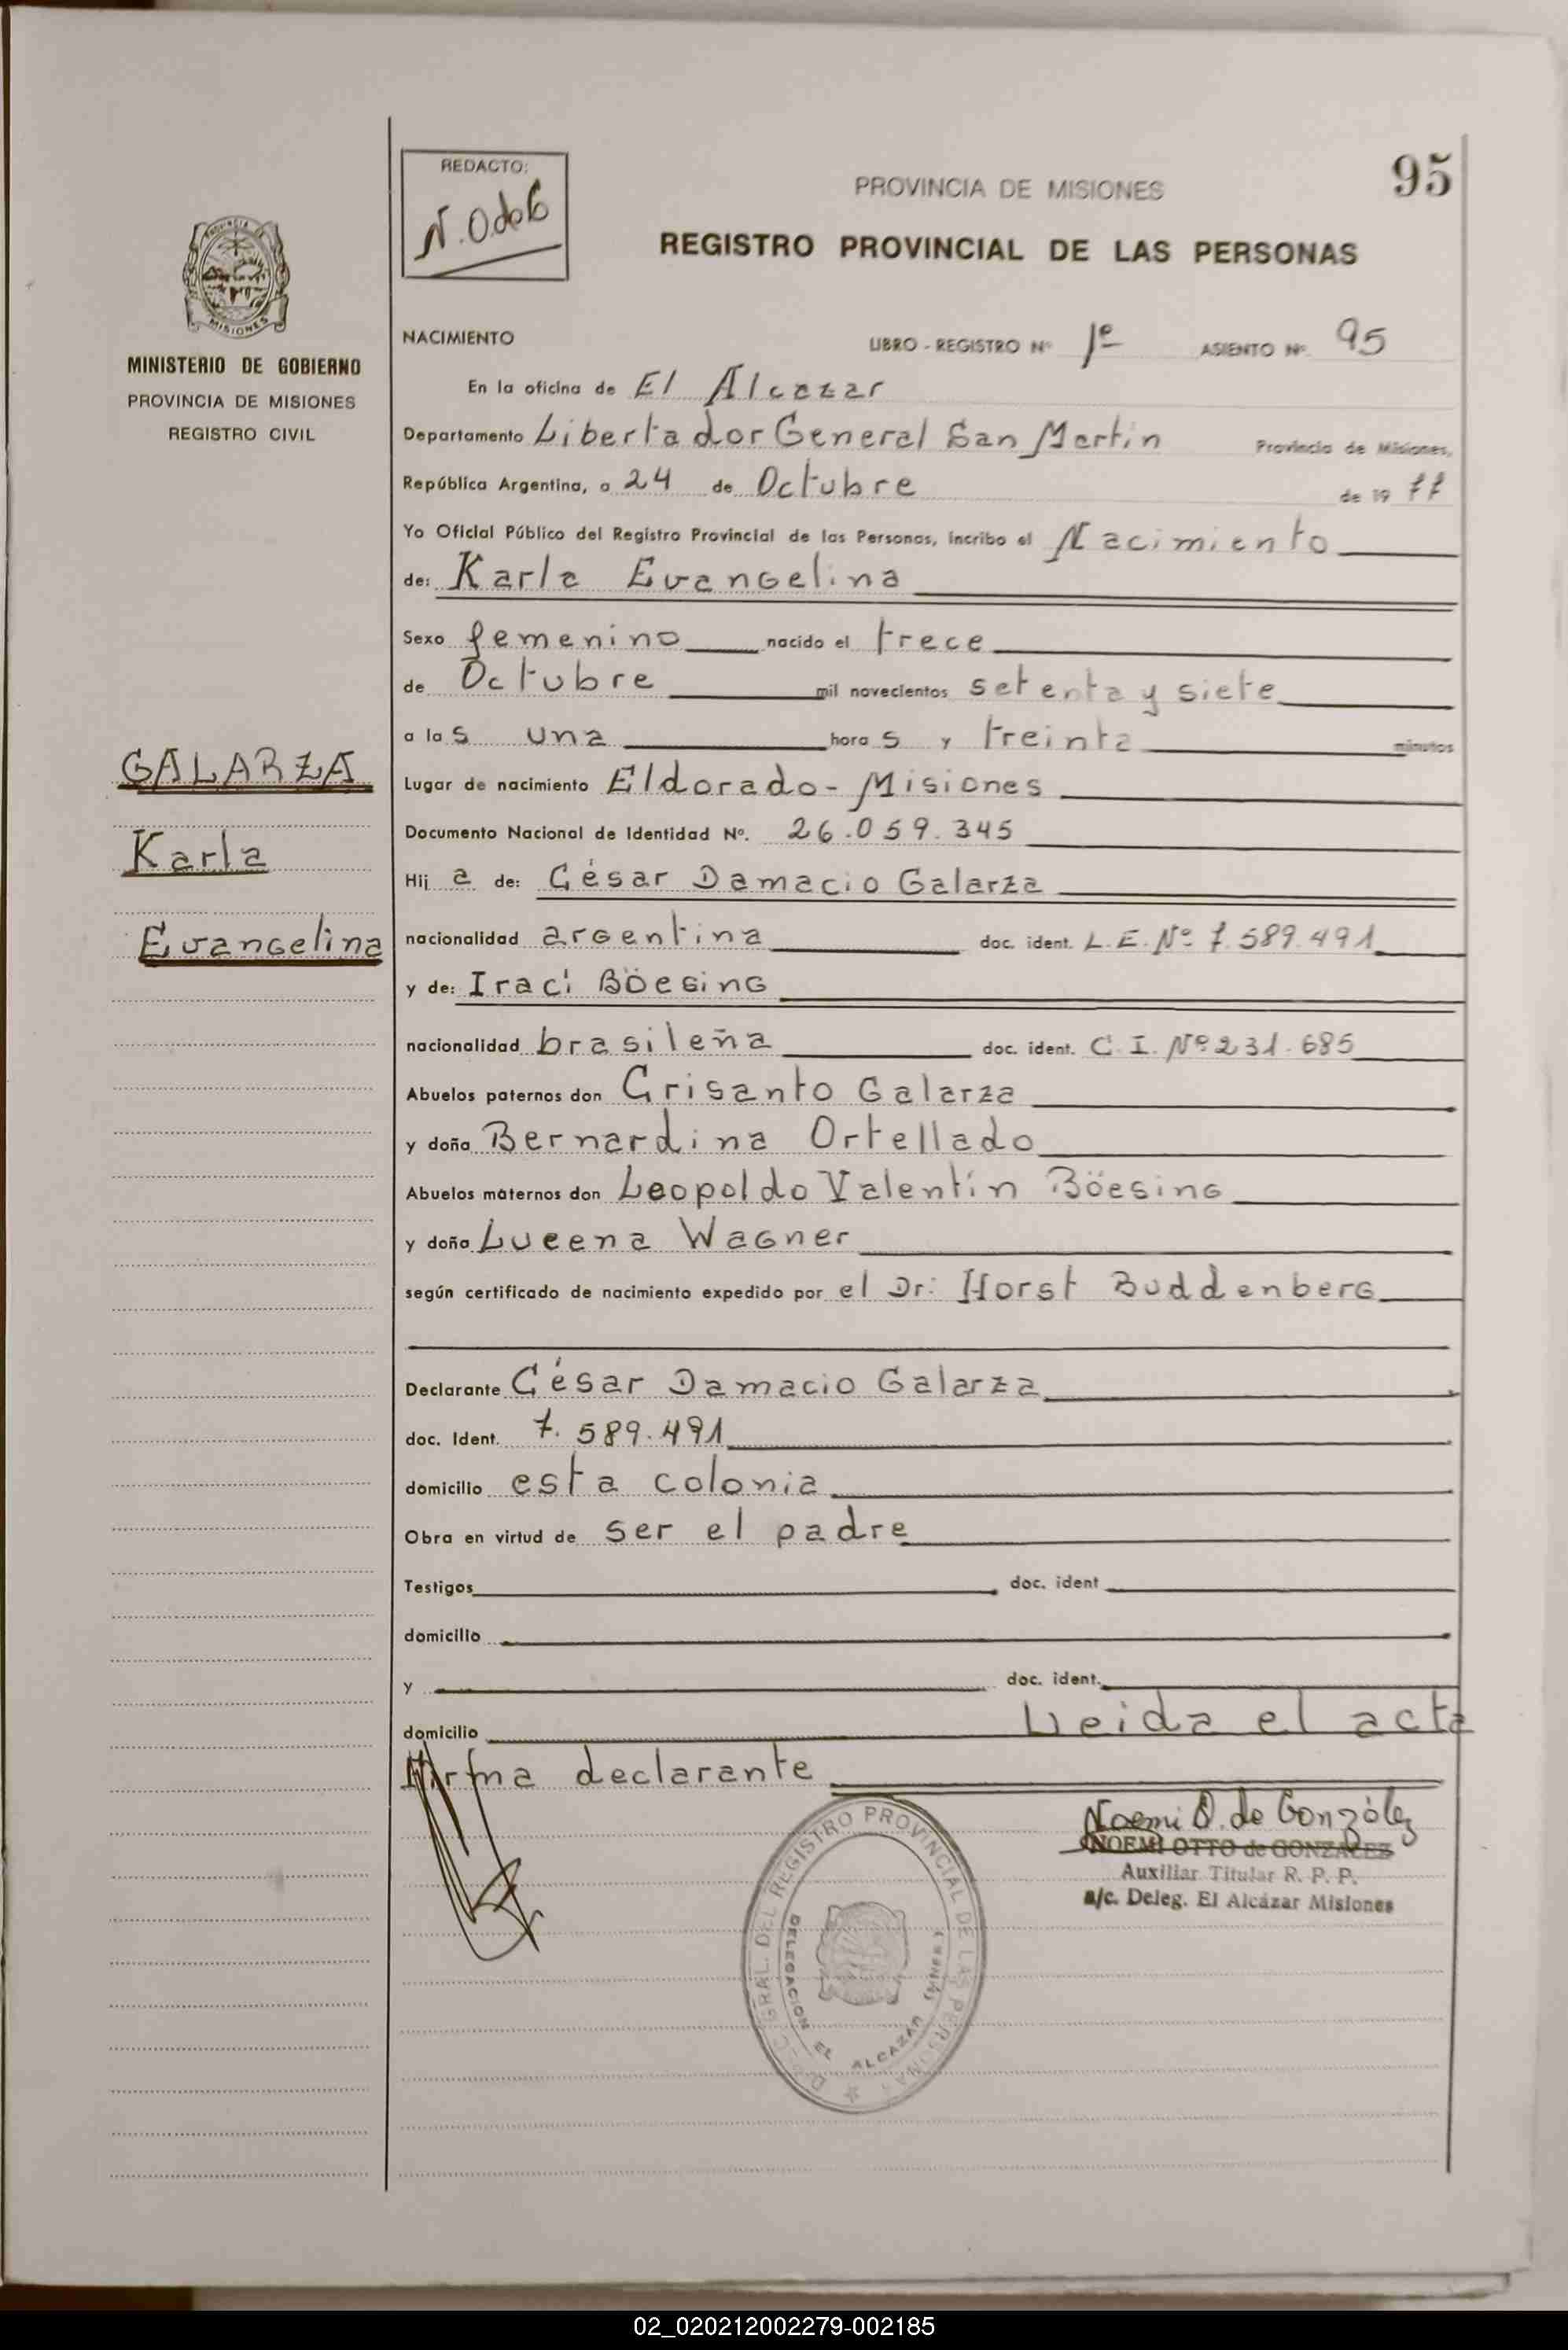 95
REDACTO:
N. O. de G
PROVINCIA DE MISIONES
REGISTRO PROVINCIAL DE LAS PERSONAS
MINISTERIO DE GOBIERNO
PROVINCIA DE MISIONES
REGISTRO CIVIL
GALARZA
Karla
Evangelina
NACIMIENTO LIBRO - REGISTRO Nº 1º ASIENTO Nº. 95
En la oficina de El Alcazar
Departamento Libertador General San Martín Provincia de Misiones,
República Argentina, a 24 de Octubre de 19 77
Yo Oficial Público del Registro Provincial de las Personas, incribo el Nacimiento
de: Karla Evangelina
Sexo femenino nacido el trece
de Octubre mil novecientos setenta y siete
a las una horas y treinta minutos
Lugar de nacimiento Eldorado - Misiones
Documento Nacional de Identidad Nº. 26.059.345
Hija de: César Damacio Galarza
nacionalidad argentina doc. ident. L.E. Nº 7.589.491
y de: Iraci Böesing
nacionalidad brasileña doc. ident. C.I. Nº 231.685
Abuelos paternos don Crisanto Galarza
y doña Bernardina Ortellado
Abuelos maternos don Leopoldo Valentín Böesing
y doña Lucena Wagner
según certificado de nacimiento expedido por el Dr: Horst Buddenberg
Declarante César Damacio Galarza
doc. Ident. 7.589.491
domicilio esta colonia
Obra en virtud de ser el padre
Testigos doc. ident
domicilio
y doc. ident.
domicilio Leida el acta
firma declarante
Noemi O. de González
NOEMI OTTO de GONZALEZ
Auxiliar Titular R. P. P.
a/c. Deleg. El Alcázar Misiones
GRAL. DEL REGISTRO PROVINCIAL DE LAS PERSONAS
DELEGACION EL ALCAZAR
02_020212002279-002185